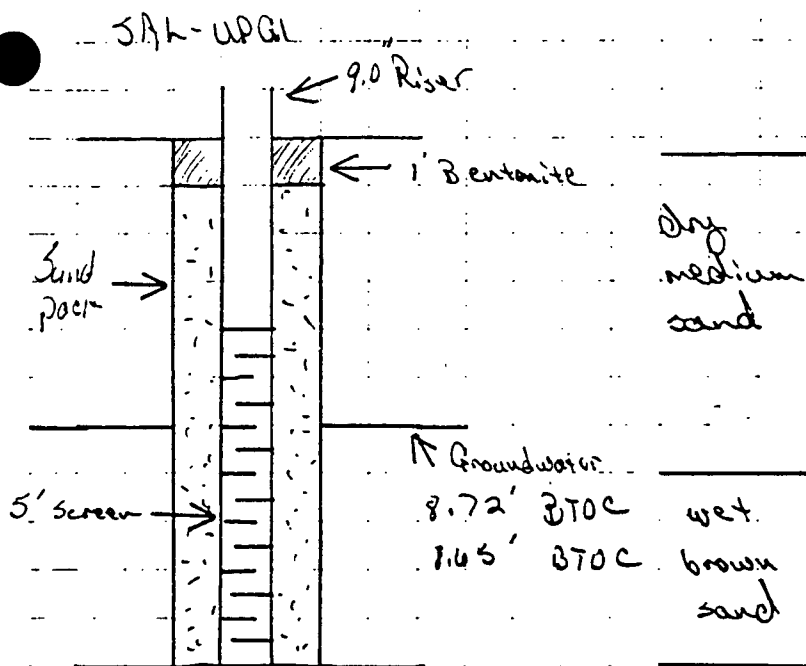 SAL-UPGL
9.0" Riser
1' Bentonite
Sand
pack
dry
medium
sand
Groundwater
8.72' BTOC
5' Screen
BTOC
wet
brown
sand